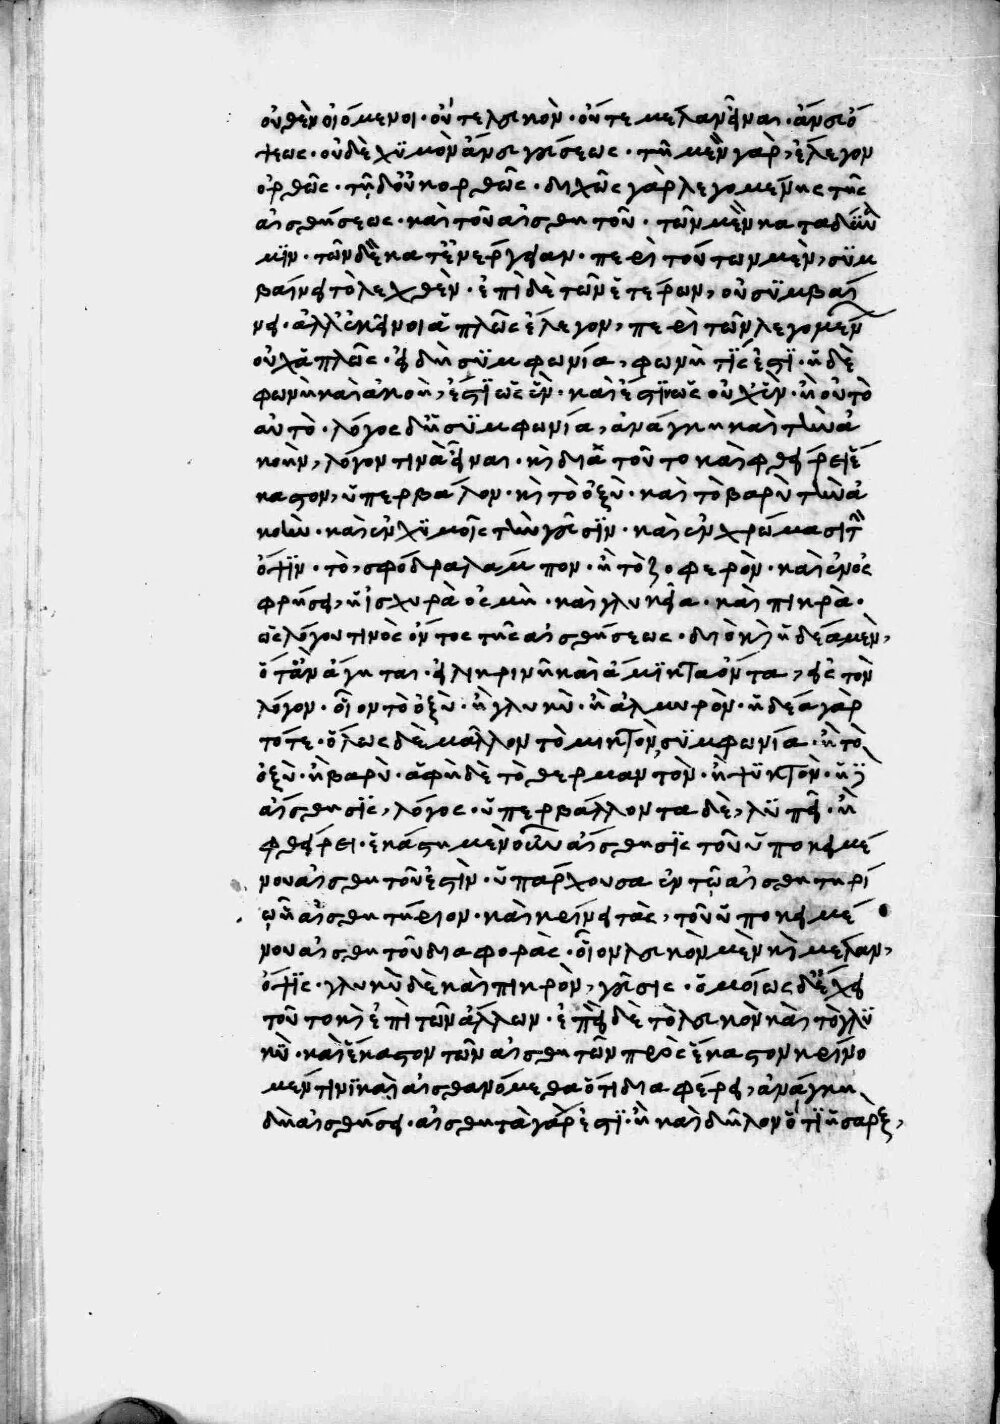 οὐθὲν οἰόμενοι· οὔτε λευκὸν· οὔτε μέλαν εἶναι· ἄνευ ὄ
ψεως· οὐδὲ χϋμὸν ἄνευ γεύσεως· τῆ μὲν γὰρ, ἔλεγον
ὀρθῶς· τῆ δ' οὐκ ὀρθῶς· διχῶς γὰρ λεγομένης τῆς
αἰσθήσεως· καὶ τοῦ αἰσθητοῦ· τῶν μὲν κατὰ δύνα
μϊν· τῶν δὲ κατ' ἐνέργειαν· περὶ τούτων μὲν, σϋμ
βαίνει τὸ λεχθὲν· ἐπὶ δὲ τῶν ἑτέρων, οὐ σϋμβαί
νει· ἀλλ' ἐκεῖνοι ἁπλῶς ἔλεγον, περὶ τῶν λεγομέν
οὐχ ἁπλῶς· εἰ δὴ σϋμφωνία, φωνὴ τίς ἐστϊ· ἡ δὲ
φωνὴ καὶ ἀκοὴ, ἔστϊν ὡς ἕν· καὶ ἔστϊν ὡς οὐχ ἓν· ἢ οὐ τὸ
αὐτὸ· λόγος δ' ἡ σϋμφωνία, ἀνάγκη καὶ τὴν ἀ
κοὴν, λόγον τινὰ εἶναι· κὶ διὰ τοῦτο καὶ φθείρει ἕ
καστον, ὑπερβάλον· κὶ τὸ ὀξὺ· καὶ τὸ βαρὺ τὴν ἀ
κοὴν· καὶ ἐν χϋμοῖς τὴν γεῦσϊν· καὶ ἐν χρώμασι τὴν
ὄψϊν· τὸ, σφόδρα λαμπρον· ἢ τὸ ζοφερὸν· καὶ ἐν ὀς
φρήσει, ἡ ἰσχυρὰ ὀσμὴ· καὶ γλυκεῖα· καὶ πικρὰ·
ὡς λόγου τινὸς ὄντος τῆς αἰσθήσεως· διὸ κὶ ἡδέα μὲν,
ὅταν ἄγηται· εἰλικρινῆ καὶ ἄμϊκτα ὄντα, εἰς τὸν
λόγον· οἷον τὸ ὀξὺ· ἢ γλυκὺ· ἢ ἁλμυρὸν· ἡδέα γὰρ
τότε· ὅλως δὲ μᾶλλον τὸ μικτὸν, σϋμφωνία· ἢ τὸ
ὀξὺ· ἢ βαρὺ· ἁφῆ δὲ τὸ θερμαντὸν· ἢ ψϋκτὸν· ἡ δ'
αἴσθησϊς, λόγος· ὑπερβάλλοντα δὲ, λϋπεῖ· ἢ
φθείρει· ἑκάστη μὲν οὖν αἴσθησϊς τοῦ ὑποκειμέ
νου αἰσθητοῦ ἐστϊν· ὑπάρχουσα ἐν τῶ αἰσθητηρί
ω ἧ αἰσθητήριον· καὶ κρίνει τὰς, τοῦ ὑποκειμέ
νου αἰσθητοῦ διαφορὰς· οἷον λευκὸν μὲν κὶ μέλαν,
ὄψϊς· γλυκὺ δὲ καὶ πικρὸν, γεῦσις· ὁμοίως δ' ἔχει
τοῦτο κὶ ἐπὶ τῶν ἄλλων· ἐπεὶ δὲ τὸ λευκὸν καὶ τὸ γλϋ
κὺ· καὶ ἕκαστον τῶν αἰσθητῶν πρὸς ἕκαστον κρίνο
μεν, τινϊ καὶ αἰσθανόμεθα ὅτι διαφέρει, ἀνάγκη
δὴ αἰσθήσει· αἰσθητὰ γάρ ἐστϊ· ἧ καὶ δῆλον ὅτϊ ἡ σὰρξ,